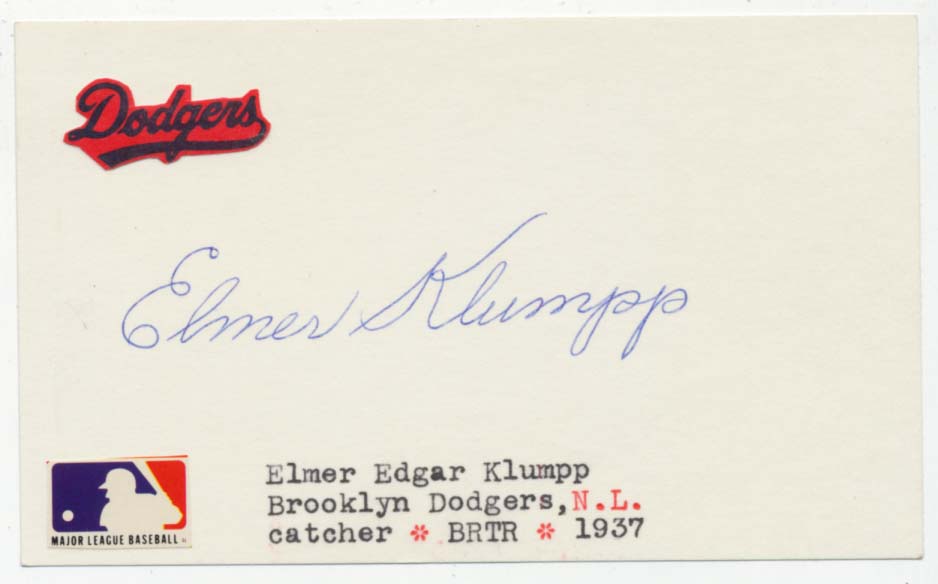 Dodgers
Elmer Klumpp
Elmer Edgar Klumpp
Brooklyn Dodgers, N.L.
catcher * BRTR * 1937
MAJOR LEAGUE BASEBALL